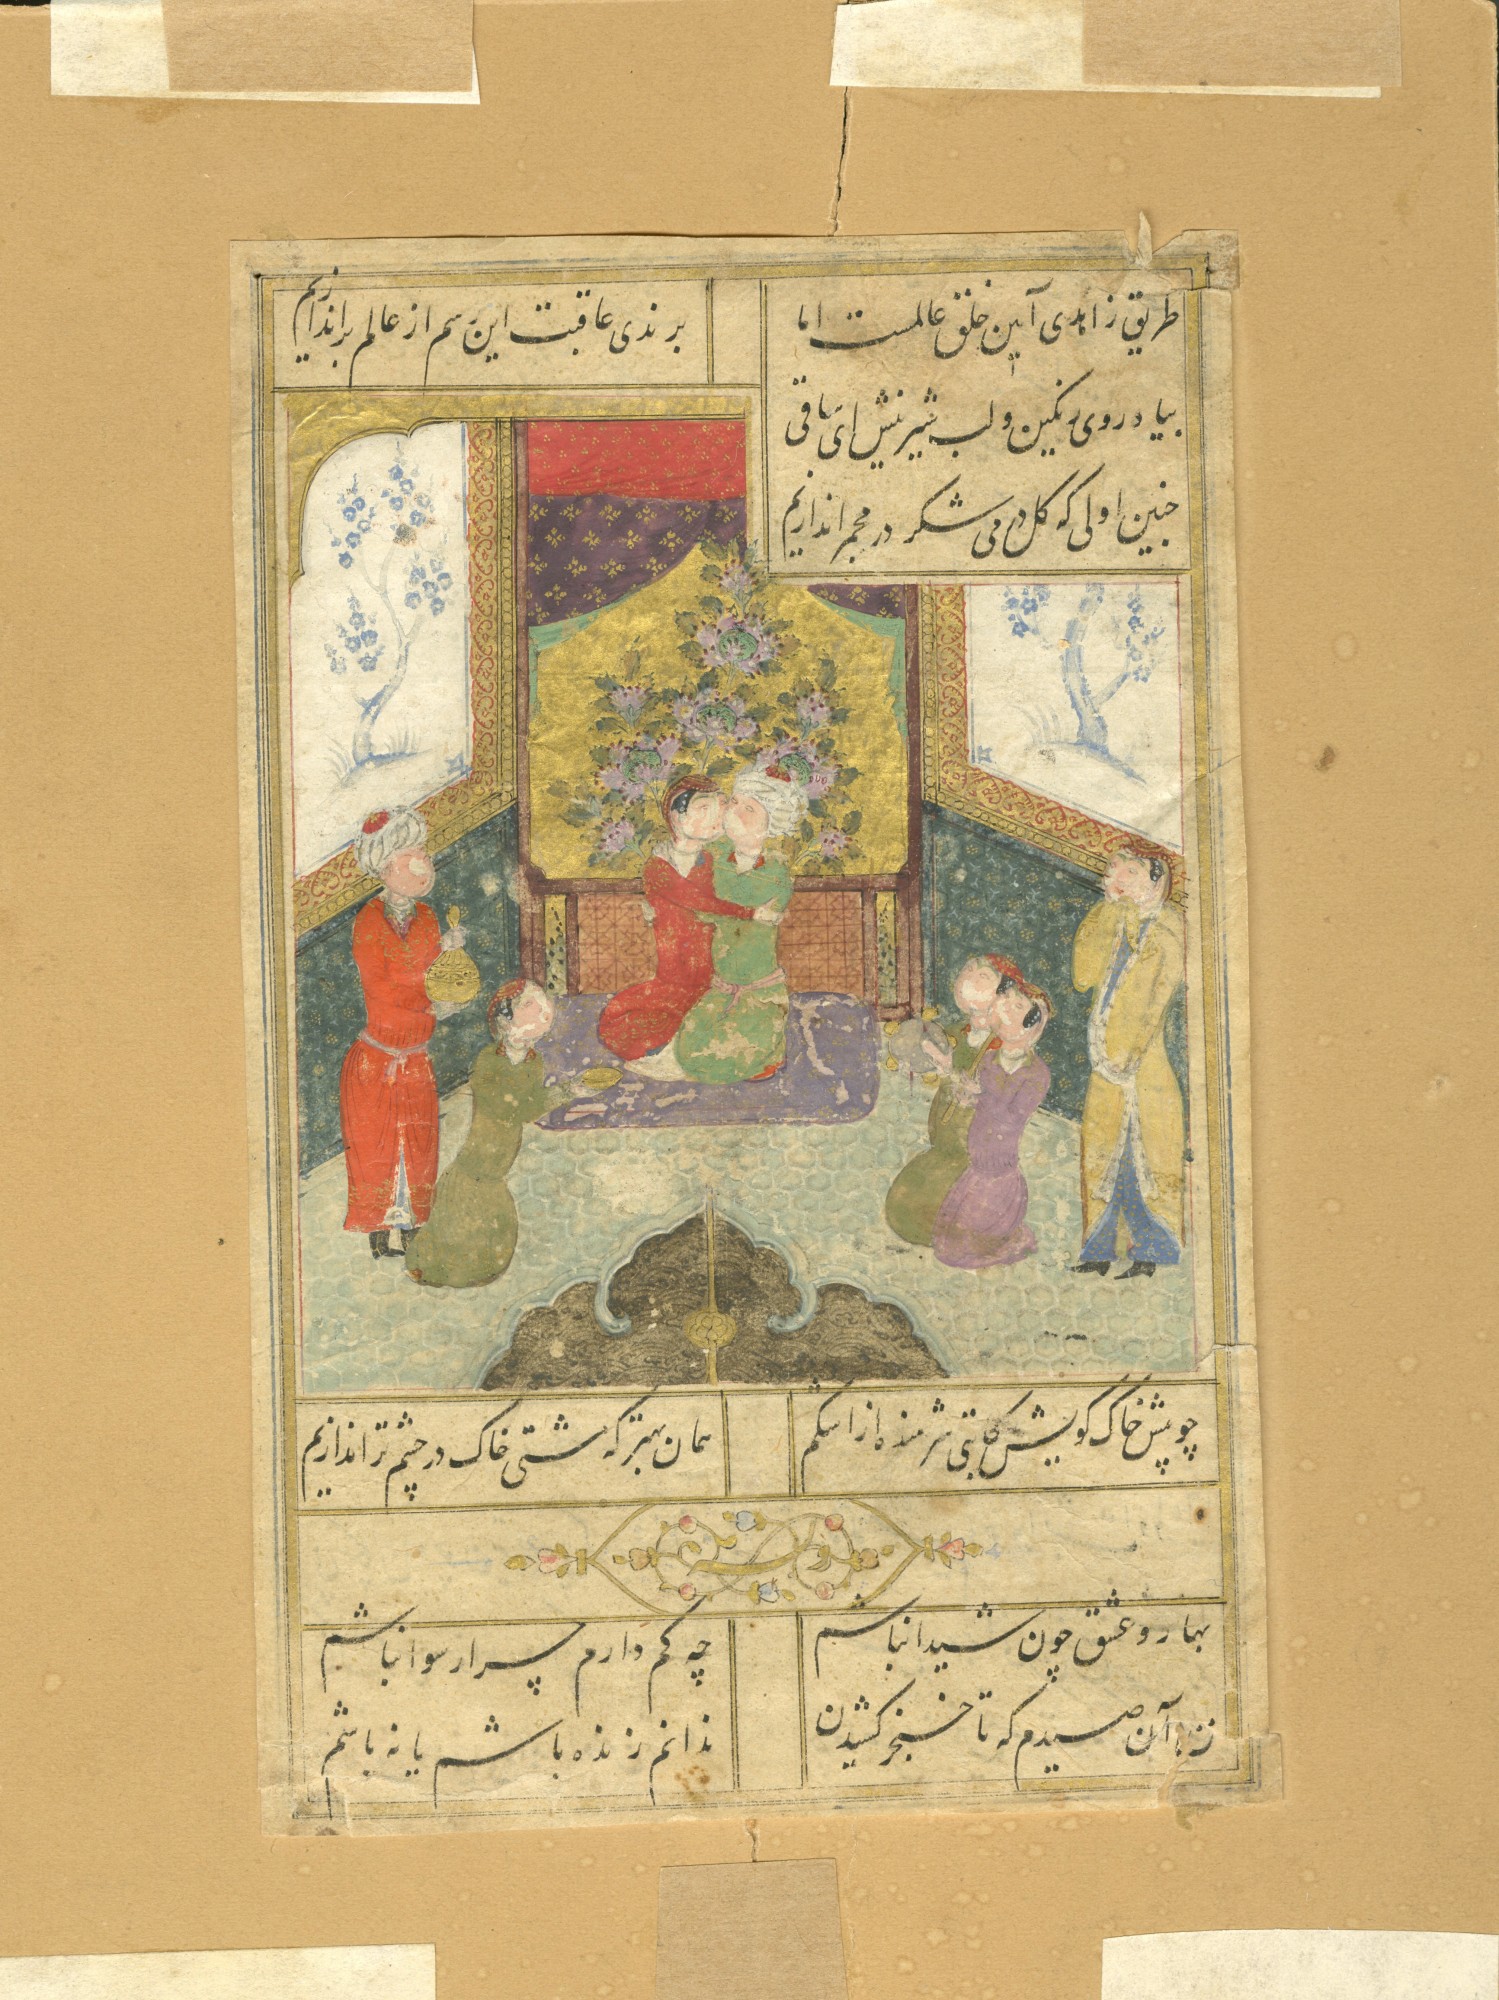 طریق زاهدی آیین خلق عالمست اما
برندی عاقبت این رسم از عالم براندازیم
بیا در روی رنگین و لب شیرینش ای ساقی
چنین اولی که گل در می شکر در مجمر اندازیم
چو پیش خاک کویش کاتبی شرمنده از اشکم
همان بهتر که مشتی خاک در چشم تر اندازیم
وله
بهار و عشق چون شیدا نباشم
چه کم دارم چرا رسوا نباشم
من آن صیدم که تا خنجر کشیدن
ندانم زنده باشم یا نه باشم